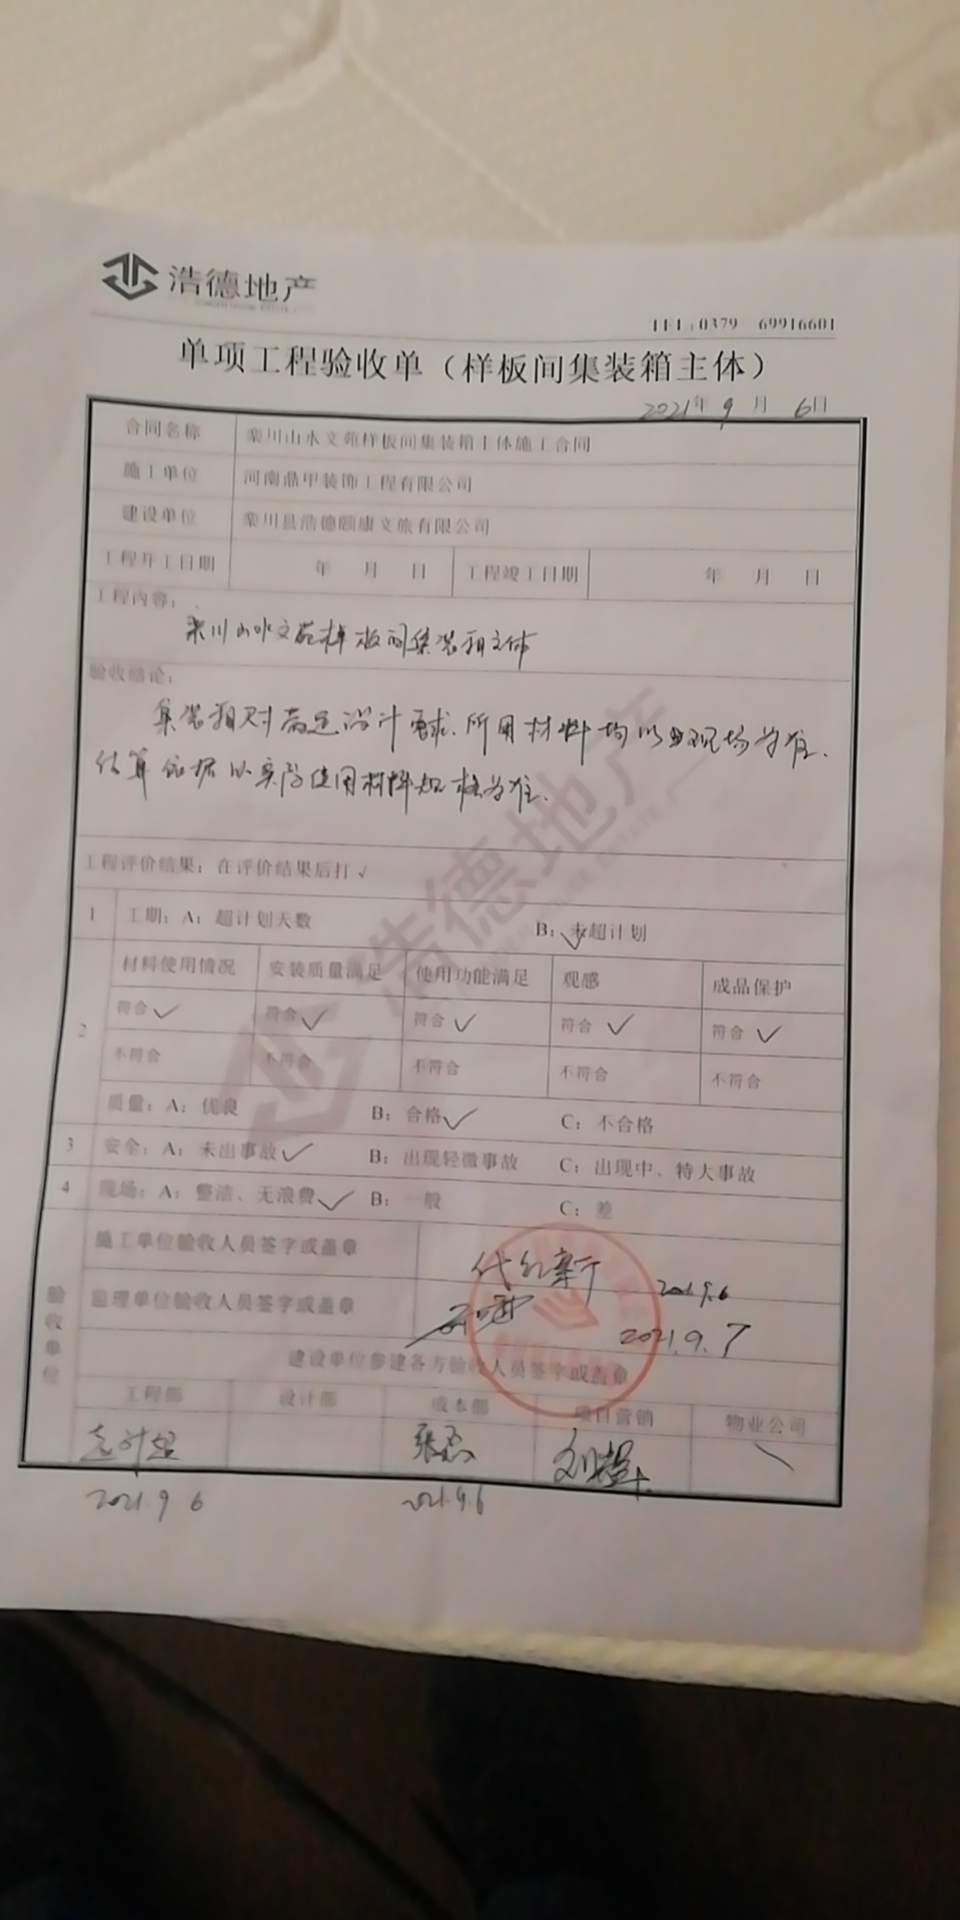 浩德地产
TEL:0379 69916601
单项工程验收单（样板间集装箱主体）
2021年 9 月 6日
合同名称 栾川山水文苑样板间集装箱主体施工合同
施工单位 河南鼎甲装饰工程有限公司
建设单位 栾川县浩德颐康文旅有限公司
工程开工日期 年 月 日 工程竣工日期 年 月 日
工程内容：
栾川山水文苑样板间集装箱主体
验收结论：
集装箱 满足设计要求.所用材料均以 现场为准.
结算依据以实际使用材料规格为准.
工程评价结果：在评价结果后打√
1 工期：A：超计划天数 B：未超计划 ✓
2 材料使用情况 安装质量满足 使用功能满足 观感 成品保护
符合 ✓ 符合 ✓ 符合 ✓ 符合 ✓ 符合 ✓
不符合 不符合 不符合 不符合 不符合
质量：A：优良 B：合格 ✓ C：不合格
3 安全：A：未出事故 ✓ B：出现轻微事故 C：出现中、特大事故
4 现场：A：整洁、无浪费 ✓ B：一般 C：差
验收单位
施工单位验收人员签字或盖章 2021.9.6
监理单位验收人员签字或盖章 2021.9.7
建设单位参建各方验收人员签字或盖章
工程部 设计部 成本部 项目营销 物业公司
2021.9.6 2021.9.6
浩德地产